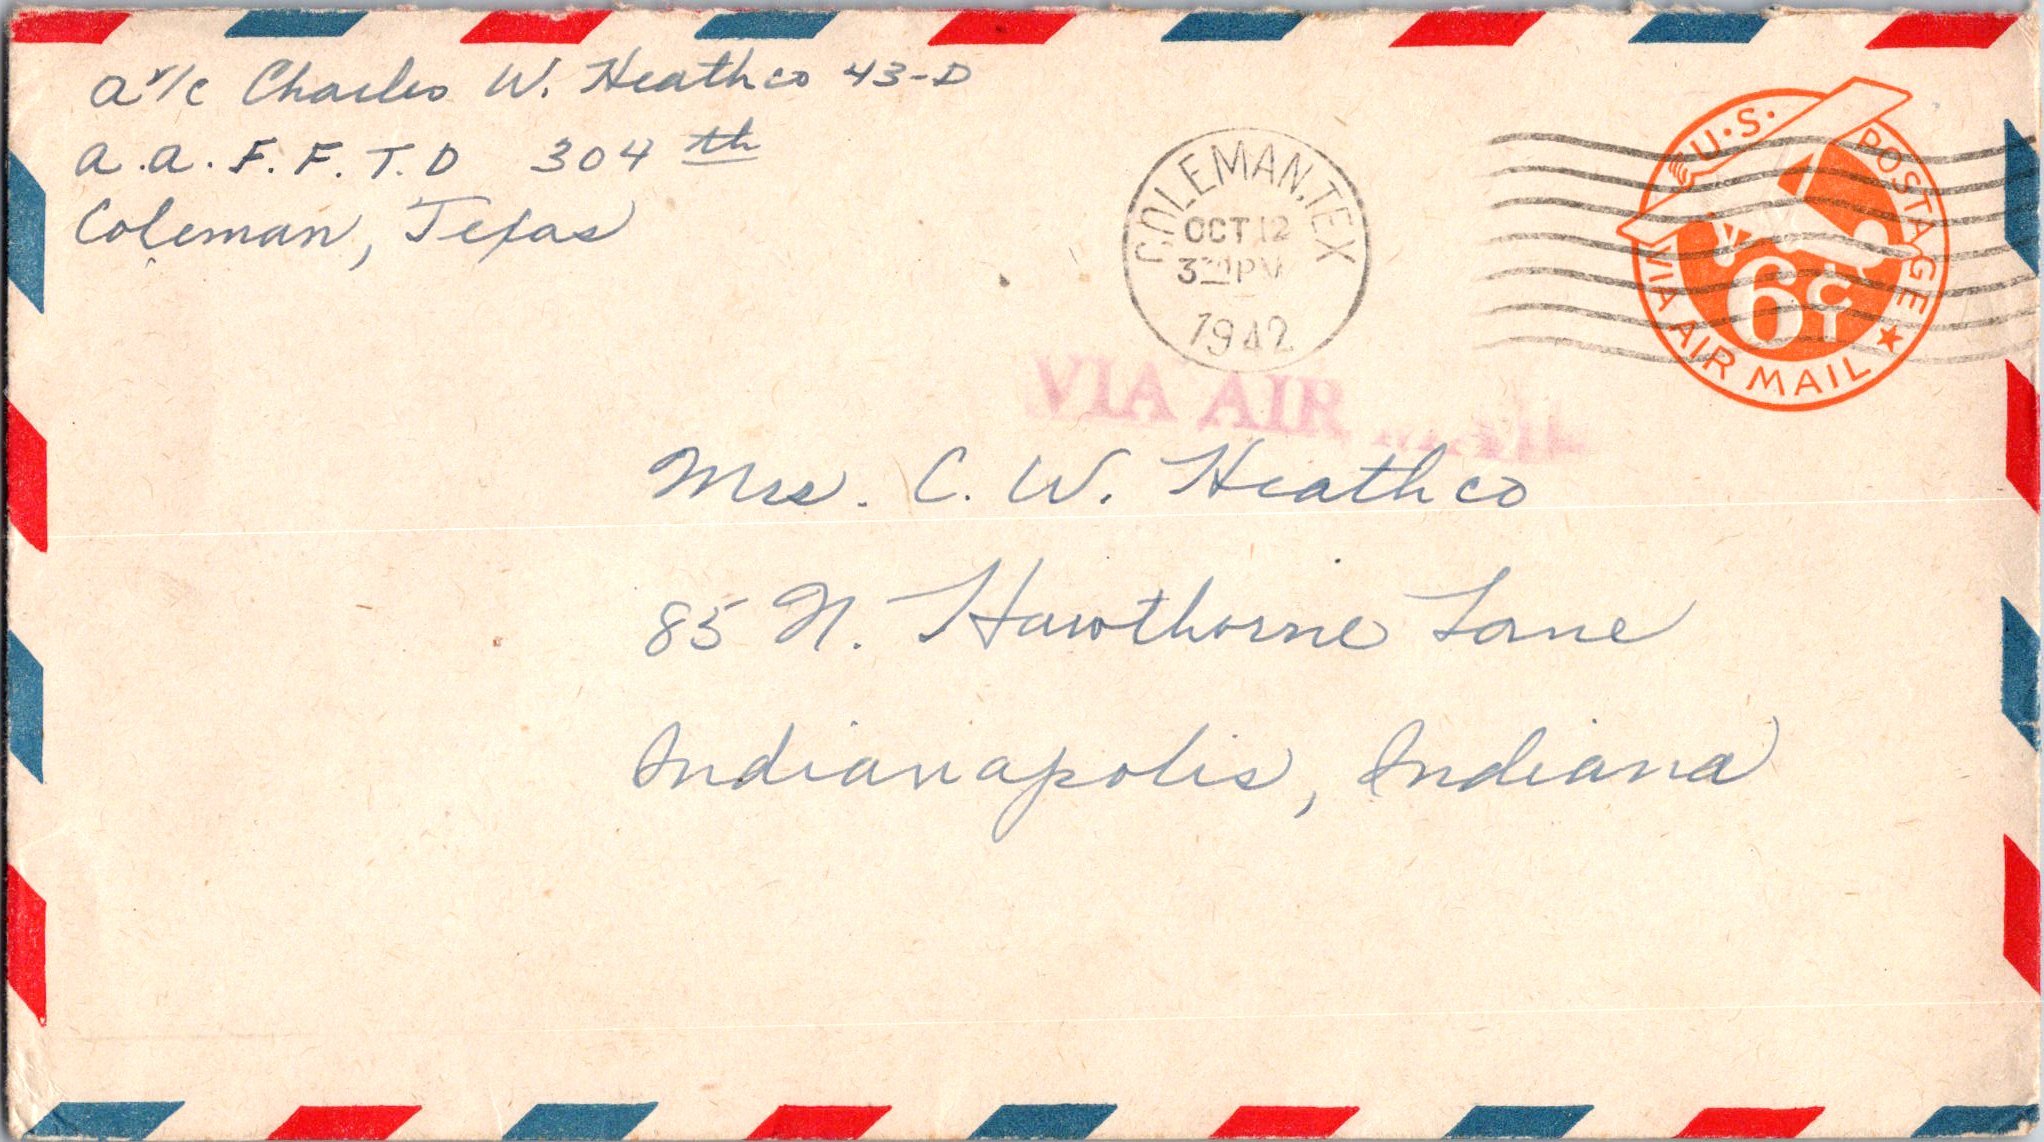 Av/c Charles W. Heathco 43-D
A.A.F.F.T.D 304th
Coleman, Texas
COLEMAN, TEX
OCT 12
PM
1942
U.S. POSTAGE
6¢
VIA AIR MAIL
VIA AIR MAIL
Mrs. C. W. Heathco
85 N. Hawthorne Lane
Indianapolis, Indiana